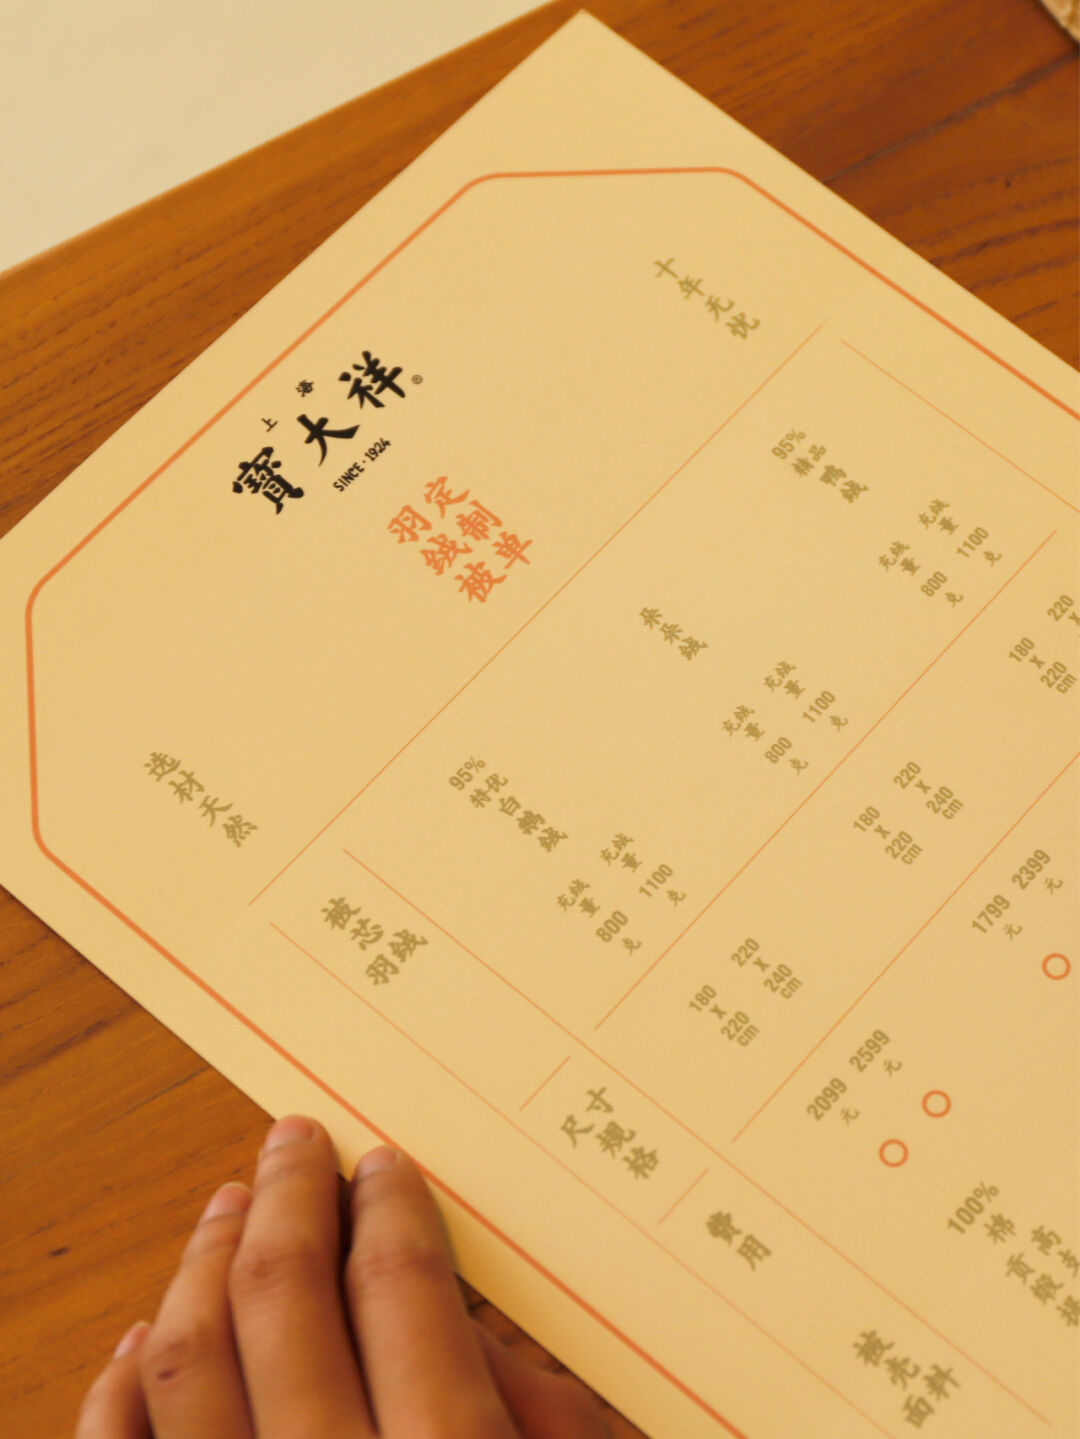 上海
寶大祥®
SINCE·1924
羽绒被
定制单
选材天然
十年无忧
被芯
羽绒
95%
特优
白鹅绒
充绒量
800克
充绒量
1100克
朵朵绒
充绒量
800克
充绒量
1100克
95%
精品
鸭绒
充绒量
800克
充绒量
1100克
尺寸
规格
180
X
220
cm
220
X
240
cm
180
X
220
cm
220
X
240
cm
180
X
220
cm
220
X
费用
2099
元
2599
元
1799
元
2399
元
被壳
面料
100%
棉
贡缎
高支